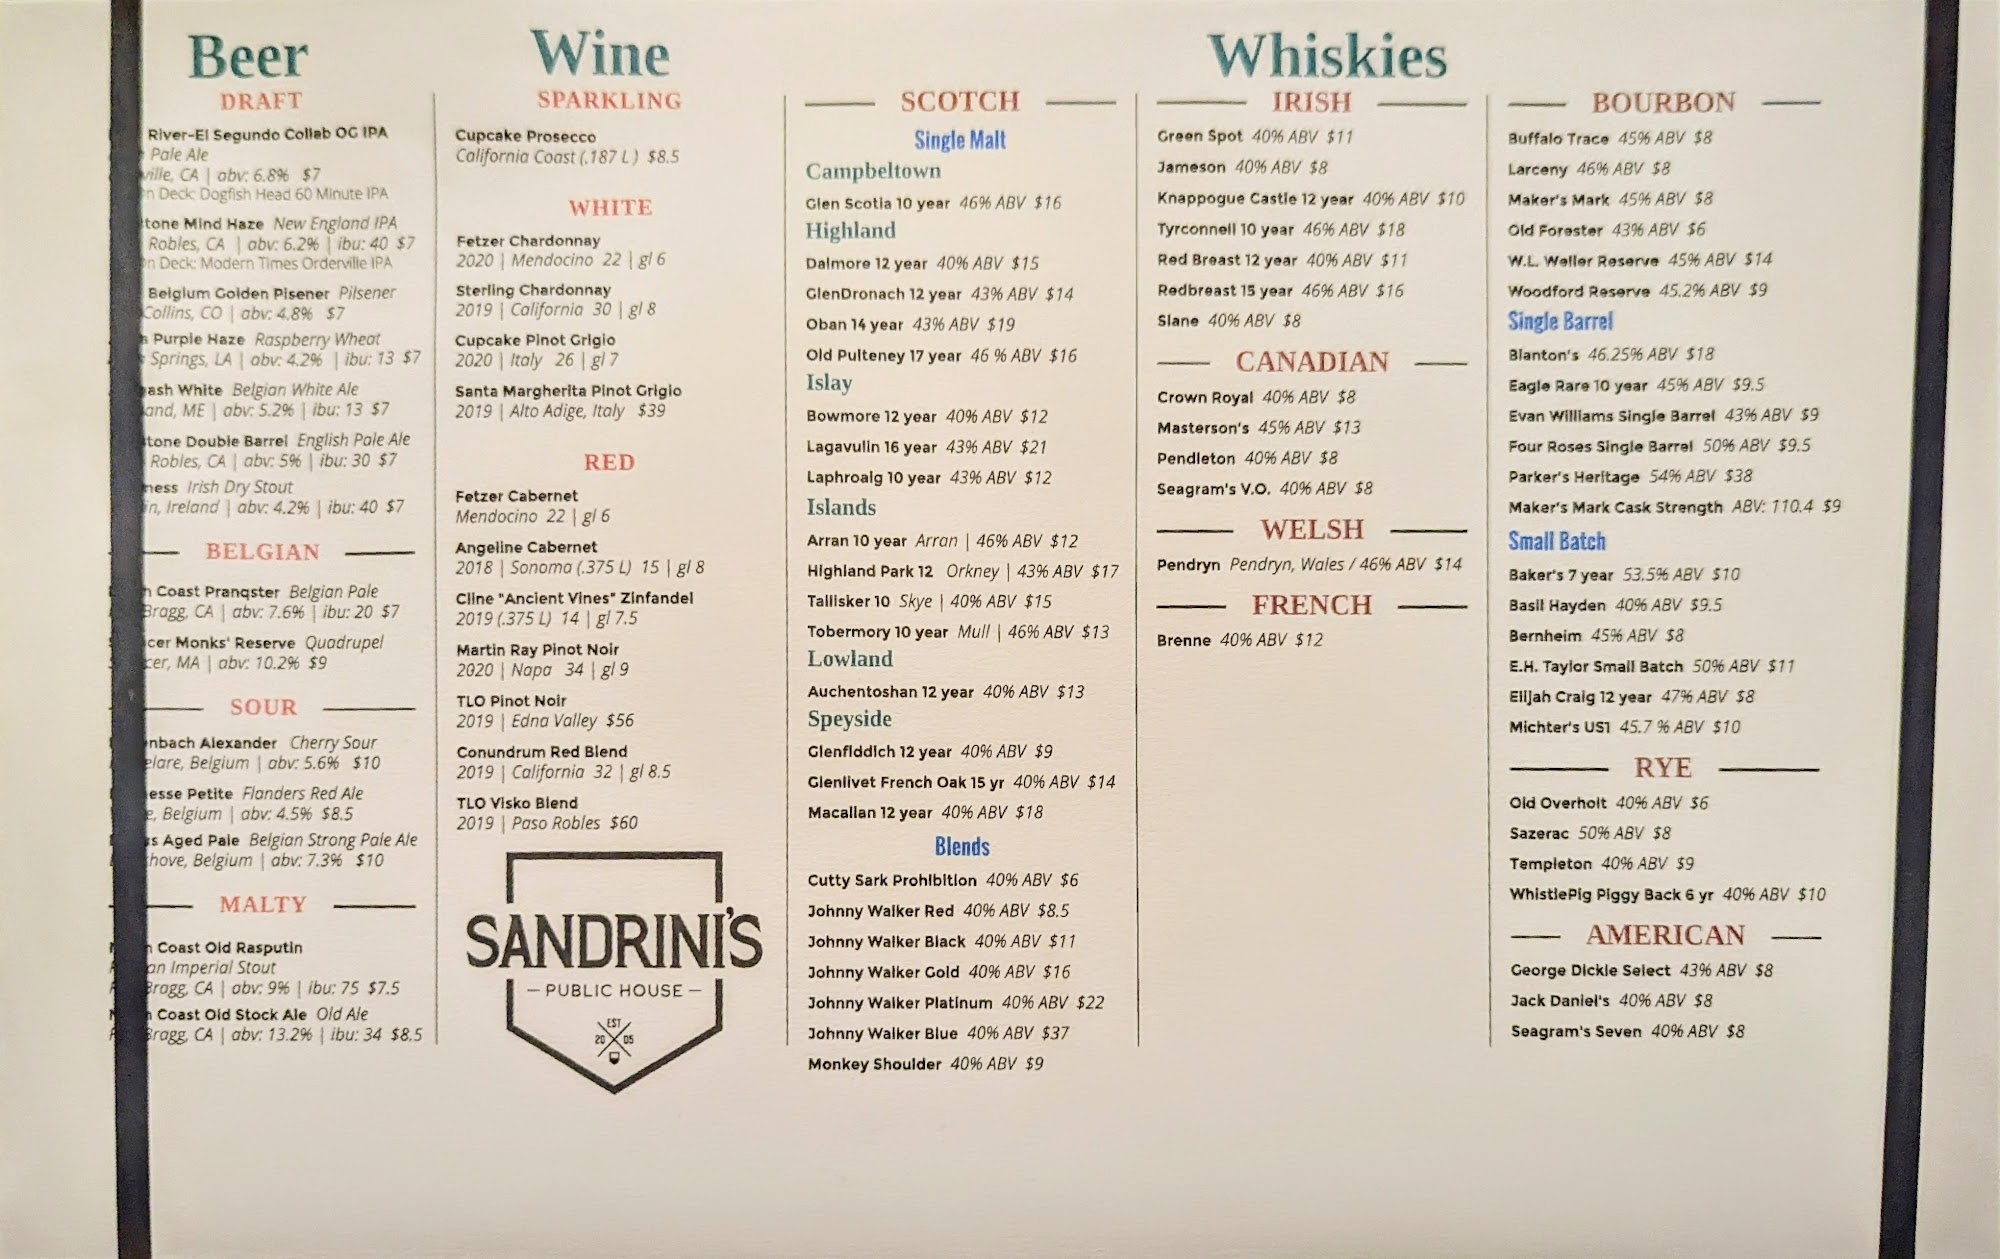 Beer
DRAFT
River-El Segundo Collab OG IPA
Pale Ale
ville, CA | abv: 6.8% $7
n Deck: Dogfish Head 60 Minute IPA
tone Mind Haze New England IPA
Robles, CA | abv: 6.2% | ibu: 40 $7
n Deck: Modern Times Orderville IPA
Belgium Golden Pisener Pilsener
Collins, CO | abv: 4.8% $7
Purple Haze Raspberry Wheat
Springs, LA | abv: 4.2% | ibu: 13 $7
ash White Belgian White Ale
and, ME | abv: 5.2% | ibu: 13 $7
tone Double Barrel English Pale Ale
Robles, CA | abv: 5% | ibu: 30 $7
ness Irish Dry Stout
in, Ireland | abv: 4.2% | ibu: 40 $7
BELGIAN
Coast Pranqster Belgian Pale
Bragg, CA | abv: 7.6% | ibu: 20 $7
cer Monks' Reserve Quadrupel
cer, MA | abv: 10.2% $9
SOUR
nbach Alexander Cherry Sour
elare, Belgium | abv: 5.6% $10
esse Petite Flanders Red Ale
e, Belgium | abv: 4.5% $8.5
s Aged Pale Belgian Strong Pale Ale
hove, Belgium | abv: 7.3% $10
MALTY
Coast Old Rasputin
an Imperial Stout
Bragg, CA | abv: 9% | ibu: 75 $7.5
Coast Old Stock Ale Old Ale
Bragg, CA | abv: 13.2% | ibu: 34 $8.5
Wine
SPARKLING
Cupcake Prosecco
California Coast (.187 L) $8.5
WHITE
Fetzer Chardonnay
2020 | Mendocino 22 | gl 6
Sterling Chardonnay
2019 | California 30 | gl 8
Cupcake Pinot Grigio
2020 | Italy 26 | gl 7
Santa Margherita Pinot Grigio
2019 | Alto Adige, Italy $39
RED
Fetzer Cabernet
Mendocino 22 | gl 6
Angeline Cabernet
2018 | Sonoma (.375 L) 15 | gl 8
Cline "Ancient Vines" Zinfandel
2019 (.375 L) 14 | gl 7.5
Martin Ray Pinot Noir
2020 | Napa 34 | gl 9
TLO Pinot Noir
2019 | Edna Valley $56
Conundrum Red Blend
2019 | California 32 | gl 8.5
TLO Visko Blend
2019 | Paso Robles $60
SANDRINI'S
PUBLIC HOUSE
EST
20 05
Whiskies
SCOTCH
Single Malt
Campbeltown
Glen Scotia 10 year 46% ABV $16
Highland
Dalmore 12 year 40% ABV $15
GlenDronach 12 year 43% ABV $14
Oban 14 year 43% ABV $19
Old Pulteney 17 year 46 % ABV $16
Islay
Bowmore 12 year 40% ABV $12
Lagavulin 16 year 43% ABV $21
Laphroaig 10 year 43% ABV $12
Islands
Arran 10 year Arran | 46% ABV $12
Highland Park 12 Orkney | 43% ABV $17
Tallisker 10 Skye | 40% ABV $15
Tobermory 10 year Mull | 46% ABV $13
Lowland
Auchentoshan 12 year 40% ABV $13
Speyside
Glenfiddich 12 year 40% ABV $9
Glenlivet French Oak 15 yr 40% ABV $14
Macallan 12 year 40% ABV $18
Blends
Cutty Sark Prohibition 40% ABV $6
Johnny Walker Red 40% ABV $8.5
Johnny Walker Black 40% ABV $11
Johnny Walker Gold 40% ABV $16
Johnny Walker Platinum 40% ABV $22
Johnny Walker Blue 40% ABV $37
Monkey Shoulder 40% ABV $9
IRISH
Green Spot 40% ABV $11
Jameson 40% ABV $8
Knappogue Castle 12 year 40% ABV $10
Tyrconnell 10 year 46% ABV $18
Red Breast 12 year 40% ABV $11
Redbreast 15 year 46% ABV $16
Slane 40% ABV $8
CANADIAN
Crown Royal 40% ABV $8
Masterson's 45% ABV $13
Pendleton 40% ABV $8
Seagram's V.O. 40% ABV $8
WELSH
Pendryn Pendryn, Wales / 46% ABV $14
FRENCH
Brenne 40% ABV $12
BOURBON
Buffalo Trace 45% ABV $8
Larceny 46% ABV $8
Maker's Mark 45% ABV $8
Old Forester 43% ABV $6
W.L. Weller Reserve 45% ABV $14
Woodford Reserve 45.2% ABV $9
Single Barrel
Blanton's 46.25% ABV $18
Eagle Rare 10 year 45% ABV $9.5
Evan Williams Single Barrel 43% ABV $9
Four Roses Single Barrel 50% ABV $9.5
Parker's Heritage 54% ABV $38
Maker's Mark Cask Strength ABV: 110.4 $9
Small Batch
Baker's 7 year 53.5% ABV $10
Basil Hayden 40% ABV $9.5
Bernheim 45% ABV $8
E.H. Taylor Small Batch 50% ABV $11
Elijah Craig 12 year 47% ABV $8
Michter's US1 45.7 % ABV $10
RYE
Old Overholt 40% ABV $6
Sazerac 50% ABV $8
Templeton 40% ABV $9
WhistlePig Piggy Back 6 yr 40% ABV $10
AMERICAN
George Dickle Select 43% ABV $8
Jack Daniel's 40% ABV $8
Seagram's Seven 40% ABV $8